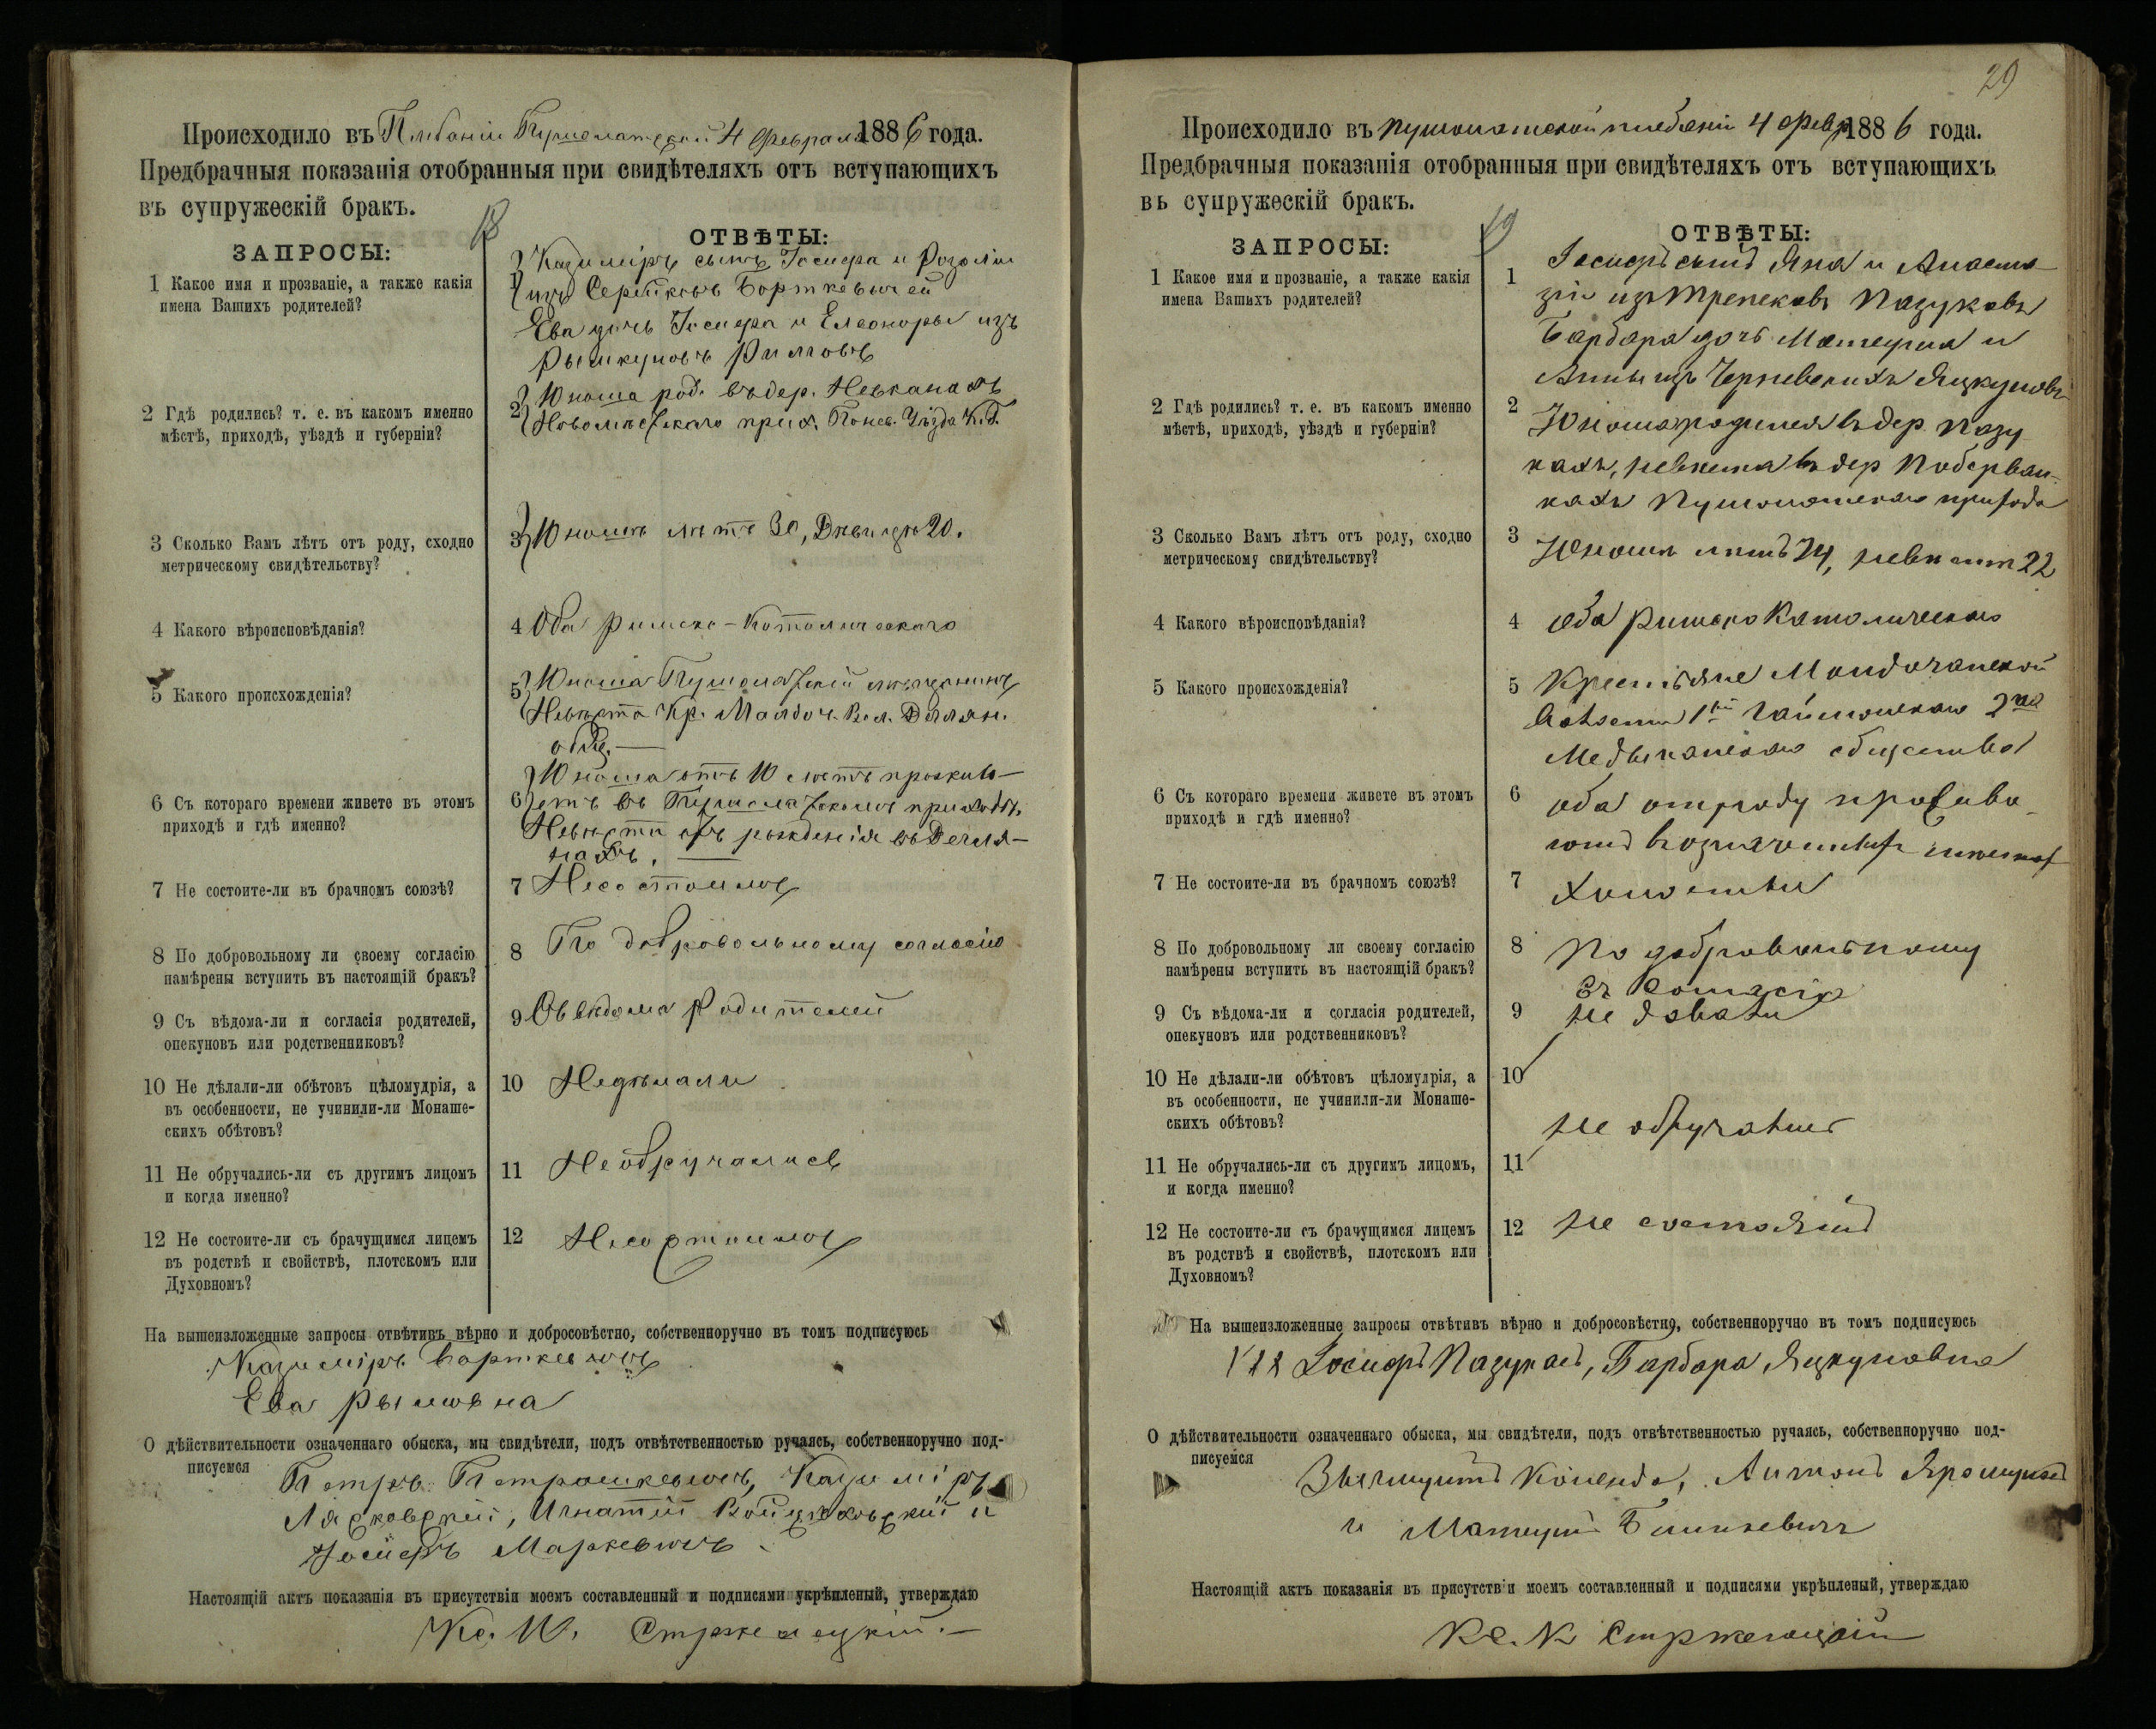 Происходило въ Плебаніи Пушолатской 4 Февраля 1886 года.
Предбрачныя показанія отобранныя при свидѣтеляхъ отъ вступающихъ
въ супружескій бракъ.
18
ЗАПРОСЫ:
ОТВѢТЫ:
1 Какое имя и прозваніе, а также какія
имена Вашихъ родителей?
1 Казиміръ сынъ Іосифа и Розаліи
изъ Серейковъ Борткевичей
Ева дочь Іосифа и Елеоноры изъ
Рымкуновъ Римшовъ
2 Гдѣ родились? т. е. въ какомъ именно
мѣстѣ, приходѣ, уѣздѣ и губерніи?
2 Юноша род. въ дер.
прих. Понев. Уѣзда К. Г.
3 Сколько Вамъ лѣтъ отъ роду, сходно
метрическому свидѣтельству?
3 Юношѣ лѣтъ 30, 20.
4 Какого вѣроисповѣданія?
4 Оба Римско-Католическаго
5 Какого происхожденія?
5 Юноша Пушолатскій мѣщанинъ
Невѣста Кр. Вол.
общ.
6 Съ котораго времени живете въ этомъ
приходѣ и гдѣ именно?
6 Юноша отъ 10 лѣтъ прожив-
етъ въ Пушолатскомъ приходѣ,
Невѣста отъ рожденія въ
7 Не состоите-ли въ брачномъ союзѣ?
7 Несостоимъ
8 По добровольному ли своему согласію
намѣрены вступить въ настоящій бракъ?
8 По добровольному согласію
9 Съ вѣдома-ли и согласія родителей,
опекуновъ или родственниковъ?
9 Съ вѣдома Родителей
10 Не дѣлали-ли обѣтовъ цѣломудрія, а
въ особенности, не учинили-ли Монаше-
скихъ обѣтовъ?
10 Недѣлали
11 Не обручались-ли съ другимъ лицомъ
и когда именно?
11 Необручались
12 Не состоите-ли съ брачущимся лицемъ
въ родствѣ и свойствѣ, плотскомъ или
Духовномъ?
12 Несостоимъ
На вышеизложенные запросы отвѣтивъ вѣрно и добросовѣстно, собственноручно въ томъ подписуюсь
Казиміръ Борткевичъ
Ева Рымшовна
О дѣйствительности означеннаго обыска, мы свидѣтели, подъ отвѣтственностью ручаясь, собственноручно под-
писуемся
Петръ Петрошкевичъ, Казиміръ
Лясковскій, Игнатій Войцѣховскій и
Іосифъ Маркевичъ
Настоящій актъ показанія въ присутствіи моемъ составленный и подписями укрѣпленый, утверждаю
Кс. Стржелецкій.
29
Происходило въ Пушолатской плебаніи 4 Февр 1886 года.
Предбрачныя показанія отобранныя при свидѣтеляхъ отъ вступающихъ
вь супружескій бракъ.
19
ЗАПРОСЫ:
ОТВѢТЫ:
1 Какое имя и прозваніе, а также какія
имена Вашихъ родителей?
1 Іосифъ сынъ Яна и Анаста
зіи изъ Трепековъ Пазуковъ
Барбара дочь Матеуша и
Анны изъ Черневскихъ Яцкуновъ
2 Гдѣ родились? т. е. въ какомъ именно
мѣстѣ, приходѣ, уѣздѣ и губерніи?
2 Юноша родился въ дер. Пазу
кахъ, невѣста въ дер
Пушолатскаго прихода
3 Сколько Вамъ лѣтъ отъ роду, сходно
метрическому свидѣтельству?
3 Юношѣ лѣтъ 24, невѣстѣ 22
4 Какого вѣроисповѣданія?
4 оба Римско Католическаго
5 Какого происхожденія?
5 Крестьяне
Волости 1ый 2ая
общества
6 Съ котораго времени живете въ этомъ
приходѣ и гдѣ именно?
6 оба отъ роду прожива
ютъ въ означенныхъ
7 Не состоите-ли въ брачномъ союзѣ?
7 Холостые
8 По добровольному ли своему согласію
намѣрены вступить въ настоящій бракъ?
8 По добровольному
9 Съ вѣдома-ли и согласія родителей,
опекуновъ или родственниковъ?
9 Съ согласія
10 Не дѣлали-ли обѣтовъ цѣломудрія, а
въ особенности, не учинили-ли Монаше-
скихъ обѣтовъ?
10 не давали
11 Не обручались-ли съ другимъ лицомъ,
и когда именно?
11 не обручались
12 Не состоите-ли съ брачущимся лицемъ
въ родствѣ и свойствѣ, плотскомъ или
Духовномъ?
12 не состоятъ
На вышеизложенные запросы отвѣтивъ вѣрно и добросовѣстно, собственноручно въ томъ подписуюсь
Іосифъ Пазукасъ, Барбара Яцкуновна
О дѣйствительности означеннаго обыска, мы свидѣтели, подъ отвѣтственностью ручаясь, собственноручно под-
писуемся
Антонъ
и Матеушъ
Настоящій актъ показанія въ присутствіи моемъ составленный и подписями укрѣпленый, утверждаю
Кс. К Стржелецкій